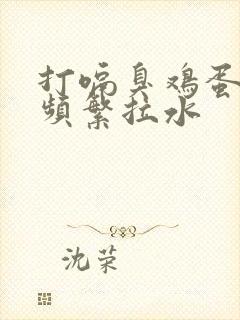 打嗝臭鸡蛋
频繁拉水
沈荣